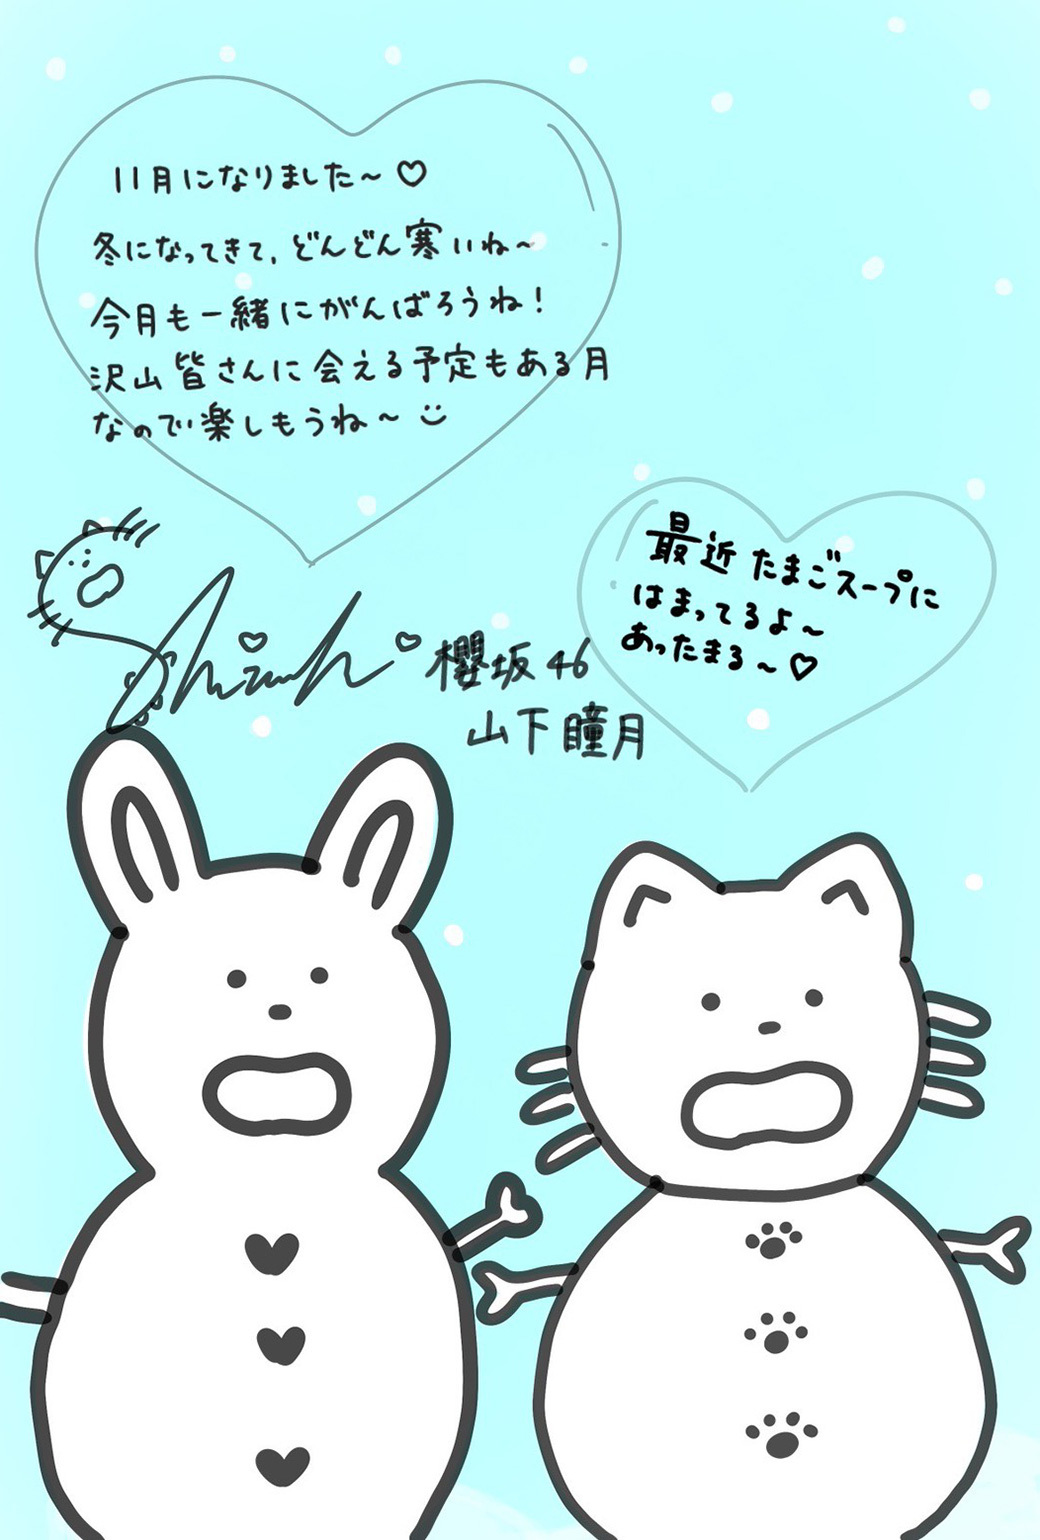 11月になりました〜♡
冬になってきて、どんどん寒いね〜
今月も一緒にがんばろうね!
沢山皆さんに会える予定もある月
なので楽しもうね〜
最近たまごスープに
はまってるよ〜
あったまる〜♡
櫻坂46
山下瞳月